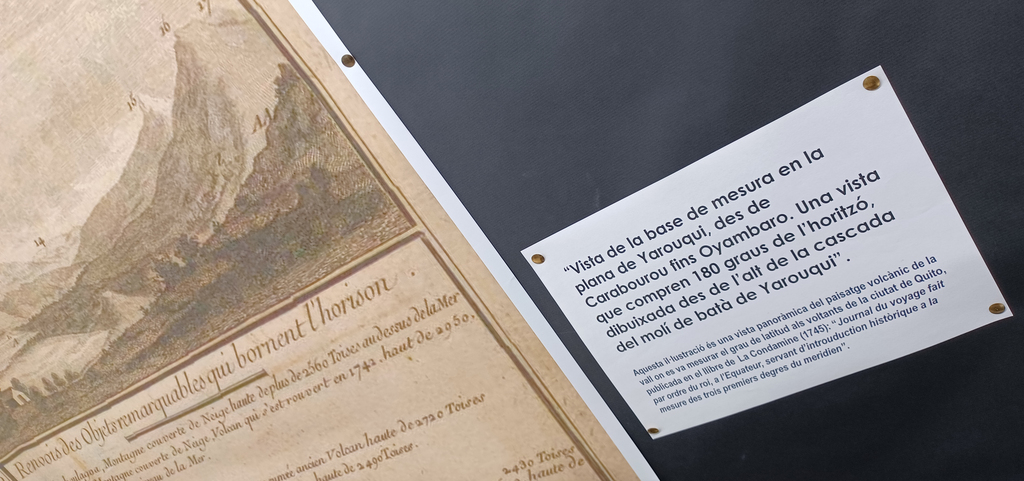 16
17
15
AA
14
Renvois des Objets remarquables qui bornent l'horison.
Montagne couverte de Neige haute de plus de 2560 Toises au dessus de la Mer
Montagne couverte de Neige Volcan qui s'est rouvert en 1742 haut de 2950,
de la Mer.
ancien Volcan haute de 2720 Toises
haute de 2490 Toises.
2430 Toises
haute de
“Vista de la base de mesura en la
plana de Yarouqui, des de
Carabourou fins Oyambaro. Una vista
que compren 180 graus de l’horitzó,
dibuixada des de l’alt de la cascada
del molí de batà de Yarouqui” .
Aquesta il·lustració és una vista panoràmica del paisatge volcànic de la
vall on es va mesurar el grau de latitud als voltants de la ciutat de Quito,
publicada en el llibre de La Condamine (1745): “ Journal du voyage fait
par ordre du roi, a l'Equateur, servant d'introuduction històrique a la
mesure des trois premiers degres du meridien”.